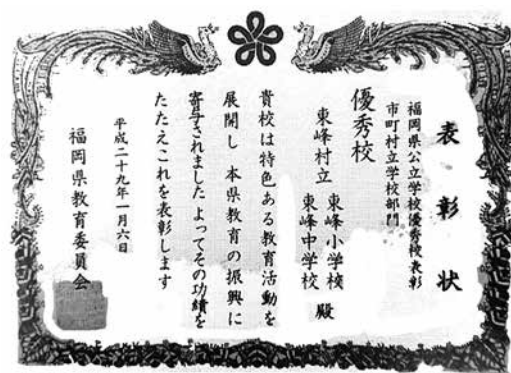 表彰状
福岡県公立学校優秀校表彰
市町村立学校部門
優秀校
東峰村立
東峰小学校
東峰中学校
殿
貴校は特色ある教育活動を
展開し本県教育の振興に
寄与されましたよってその功績を
たたえこれを表彰します
平成二十九年一月六日
福岡県教育委員会